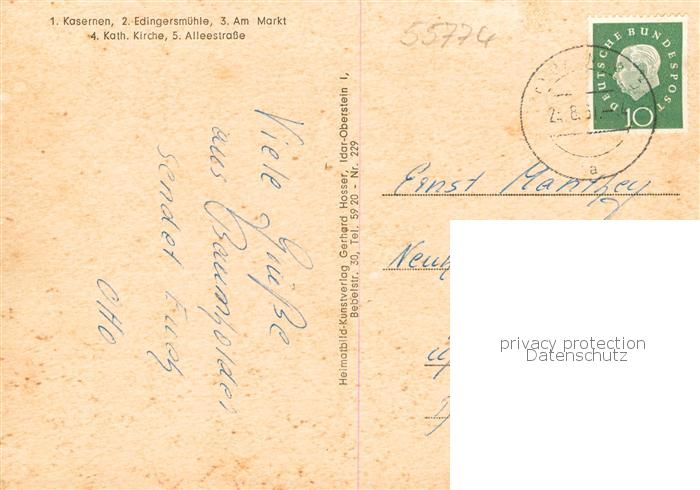 1. Kasernen, 2. Edingersmühle, 3. Am Markt
4. Kath. Kirche, 5. Alleestraße
55774
DEUTSCHE BUNDESPOST
10
a
Viele Grüße
aus Baumholder
sendet Euch
Otto
Heimatbild-Kunstverlag Gerhard Hosser, Idar-Oberstein I,
Bebelstr. 30, Tel. 5920 - Nr. 229
Ernst Manthey
privacy protection
Datenschutz